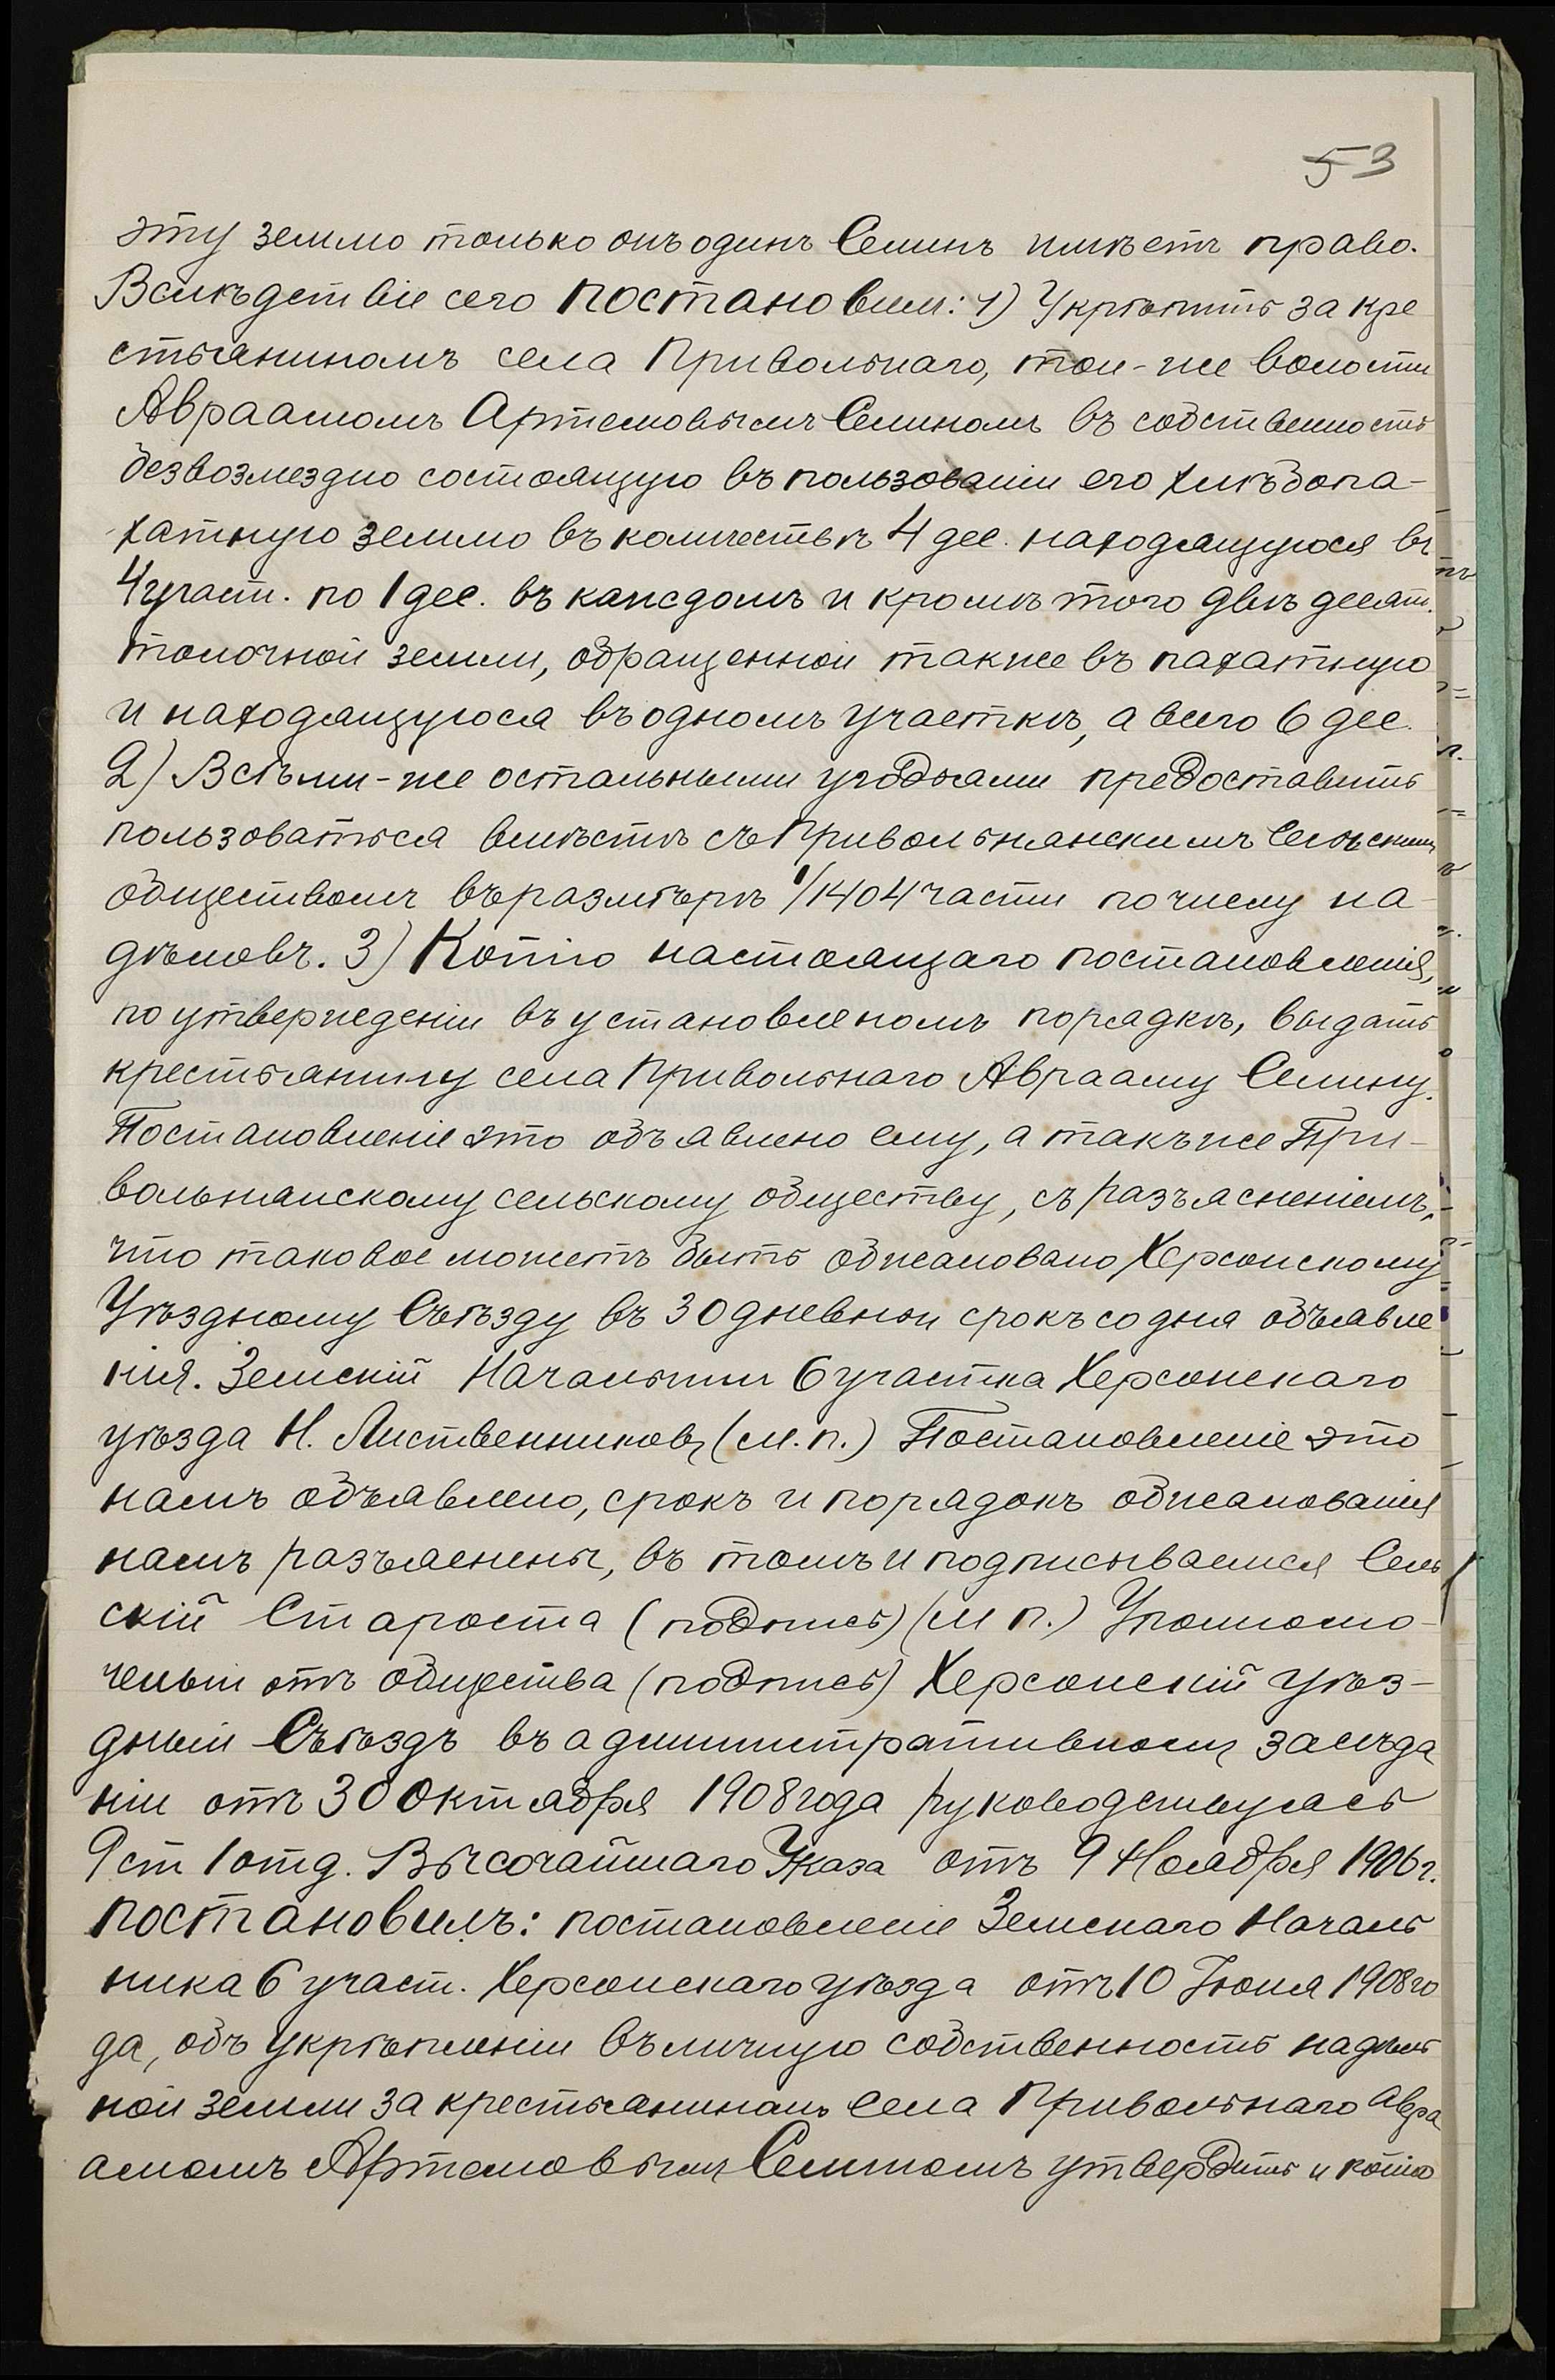 53
эту землю только онъ одинъ Семинъ имѣетъ право.
Вслѣдствіе сего постановилъ: 1) Укрѣпить за кре
стьяниномъ села Привольнаго, той-же волости
Авраамомъ Артемовымъ Семиномъ въ собственность
безвозмездно состоящую въ пользованіи его хлѣбопа-
хатную землю въ количествѣ 4 дес. находящуюся въ
4 участ. по 1 дес. въ каждомъ и кромѣ того двѣ десят.
толочной земли, обращенной также въ пахатную
и находящуюся въ одномъ участкѣ, а всего 6 дес.
2) Всѣми-же остальными угодьями предоставить
пользоваться вмѣстѣ съ Привольнянскимъ Сельскимъ
обществомъ въ размѣрѣ 1/1404 части по числу на-
дѣловъ. 3) Копію настоящаго постановленія,
по утвержденіи въ установленомъ порядкѣ, выдать
крестьянину села Привольнаго Аврааму Семину.
Постановленіе это объявлено ему, а такъже При-
вольнянскому сельскому обществу, съ разъясненіемъ,
что таковое можетъ быть обжаловано Херсонскому
Уѣздному Съѣзду въ 30 дневной срокъ со дня объявле
нія. Земскій Начальникъ 6 участка Херсонскаго
уѣзда Н. Лиственниковъ (м.п.) Постановленіе это
намъ объявлено, срокъ и порядокъ обжалованія
намъ разъяснены, въ томъ и подписываемся Сель
скій Староста (подпись) (м п.) Уполномо-
ченый отъ общества (подпись) Херсонскій уѣз-
дный Съѣздъ въ административномъ засѣда
ніи отъ 30 Октября 1908 года руководствуясь
9 ст 1 отд. Высочайшаго Указа отъ 9 Ноября 1906 г.
постановилъ: постановленіе Земскаго Началь
ника 6 участ. Херсонскаго уѣзда отъ 10 Іюня 1908 го
да, объ укрѣпленіи въ личную собственность надѣль
ной земли за крестьяниномъ села Привольнаго Авра
амомъ Артемовымъ Семиномъ утвердить и копію